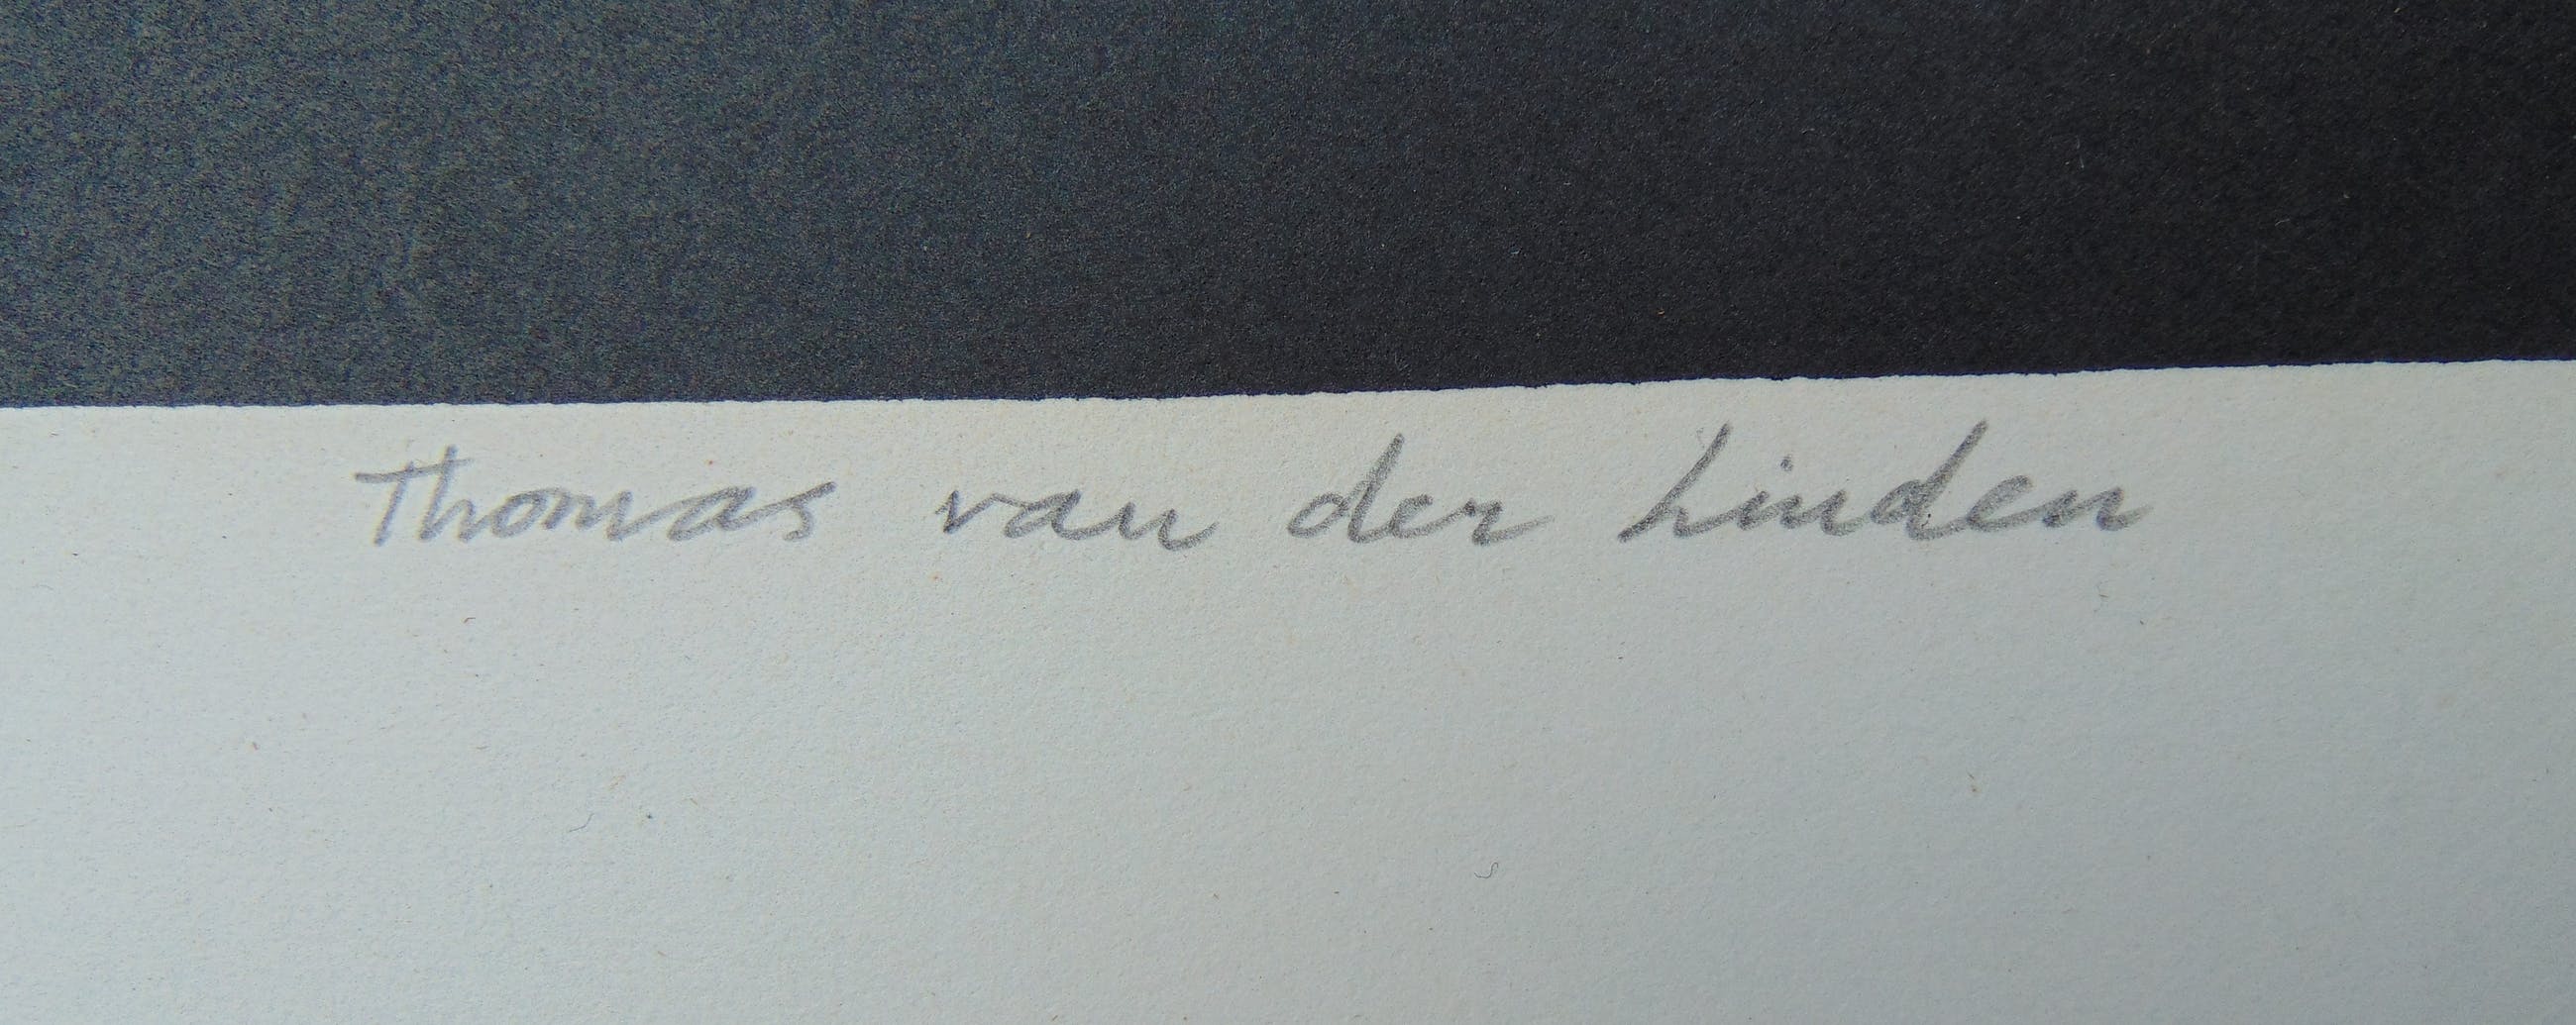 Thomas van der Linden